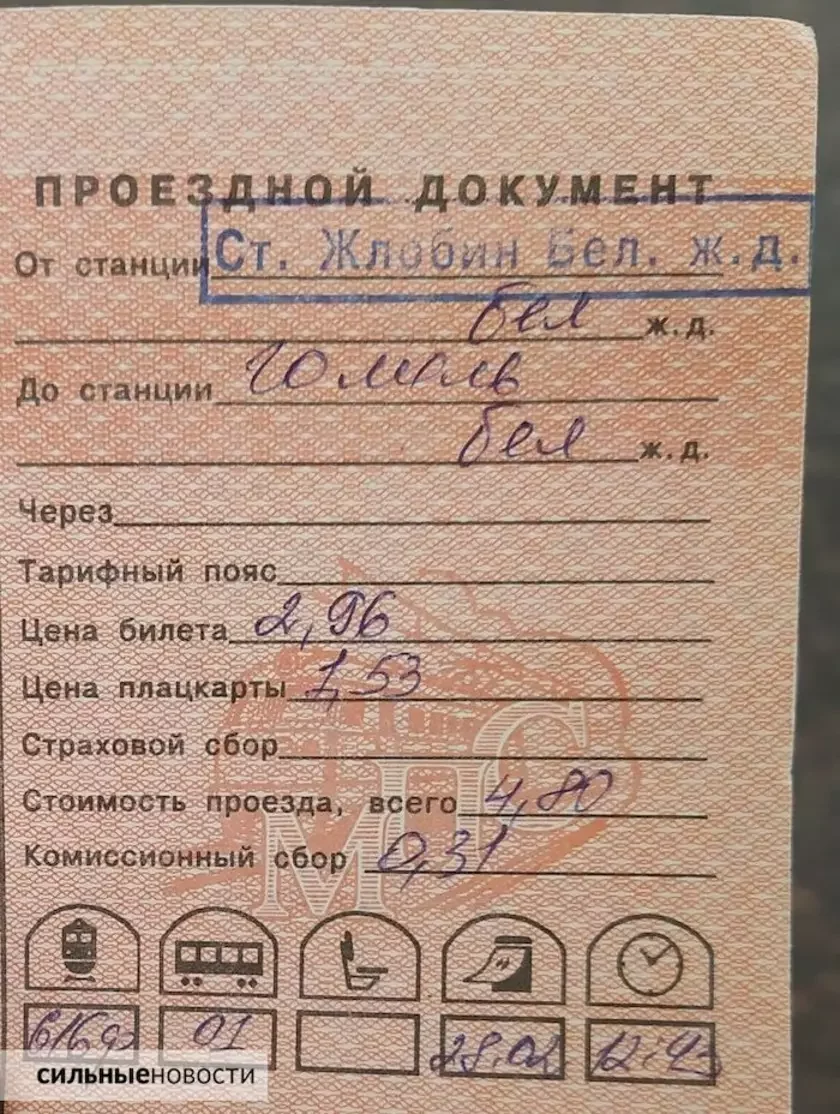 ПРОЕЗДНОЙ ДОКУМЕНТ
От станции Ст. Жлобин Бел. ж.д.
бел ж.д.
До станции гомель
бел ж.д.
Через
Тарифный пояс
Цена билета 2,96
Цена плацкарты 1,53
Страховой сбор
Стоимость проезда, всего 4,80
Комиссионный сбор 0,31
МПС
01 28.02 12:43
СИЛЬНЫЕНОВОСТИ